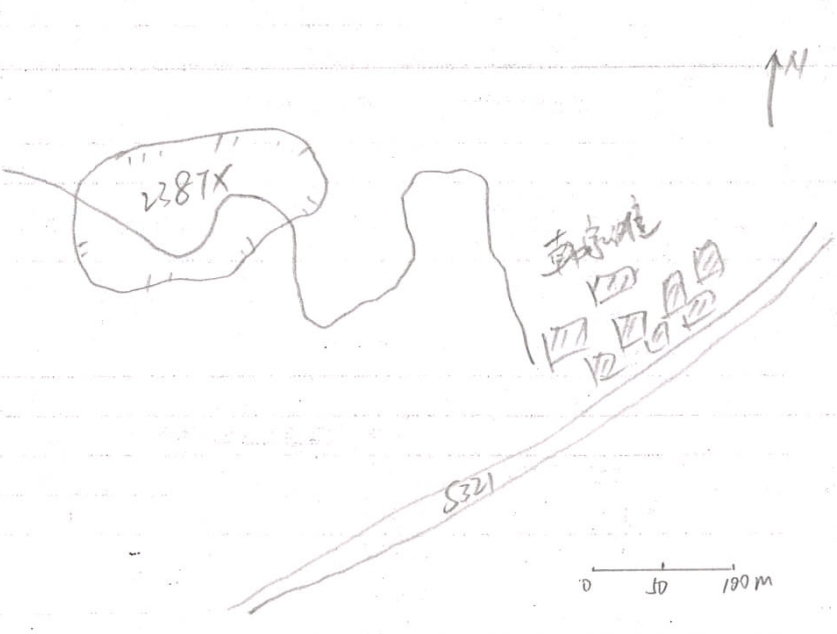 N
238TX
韩家滩
S321
0 50 100m